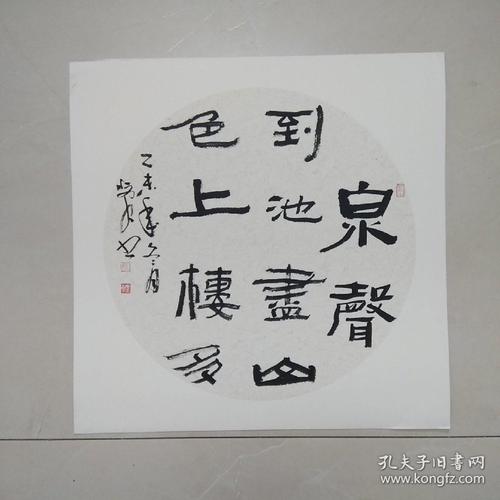 泉聲
到池盡山
色上樓多
乙未年冬月
孔夫子旧书网
www.kongfz.com